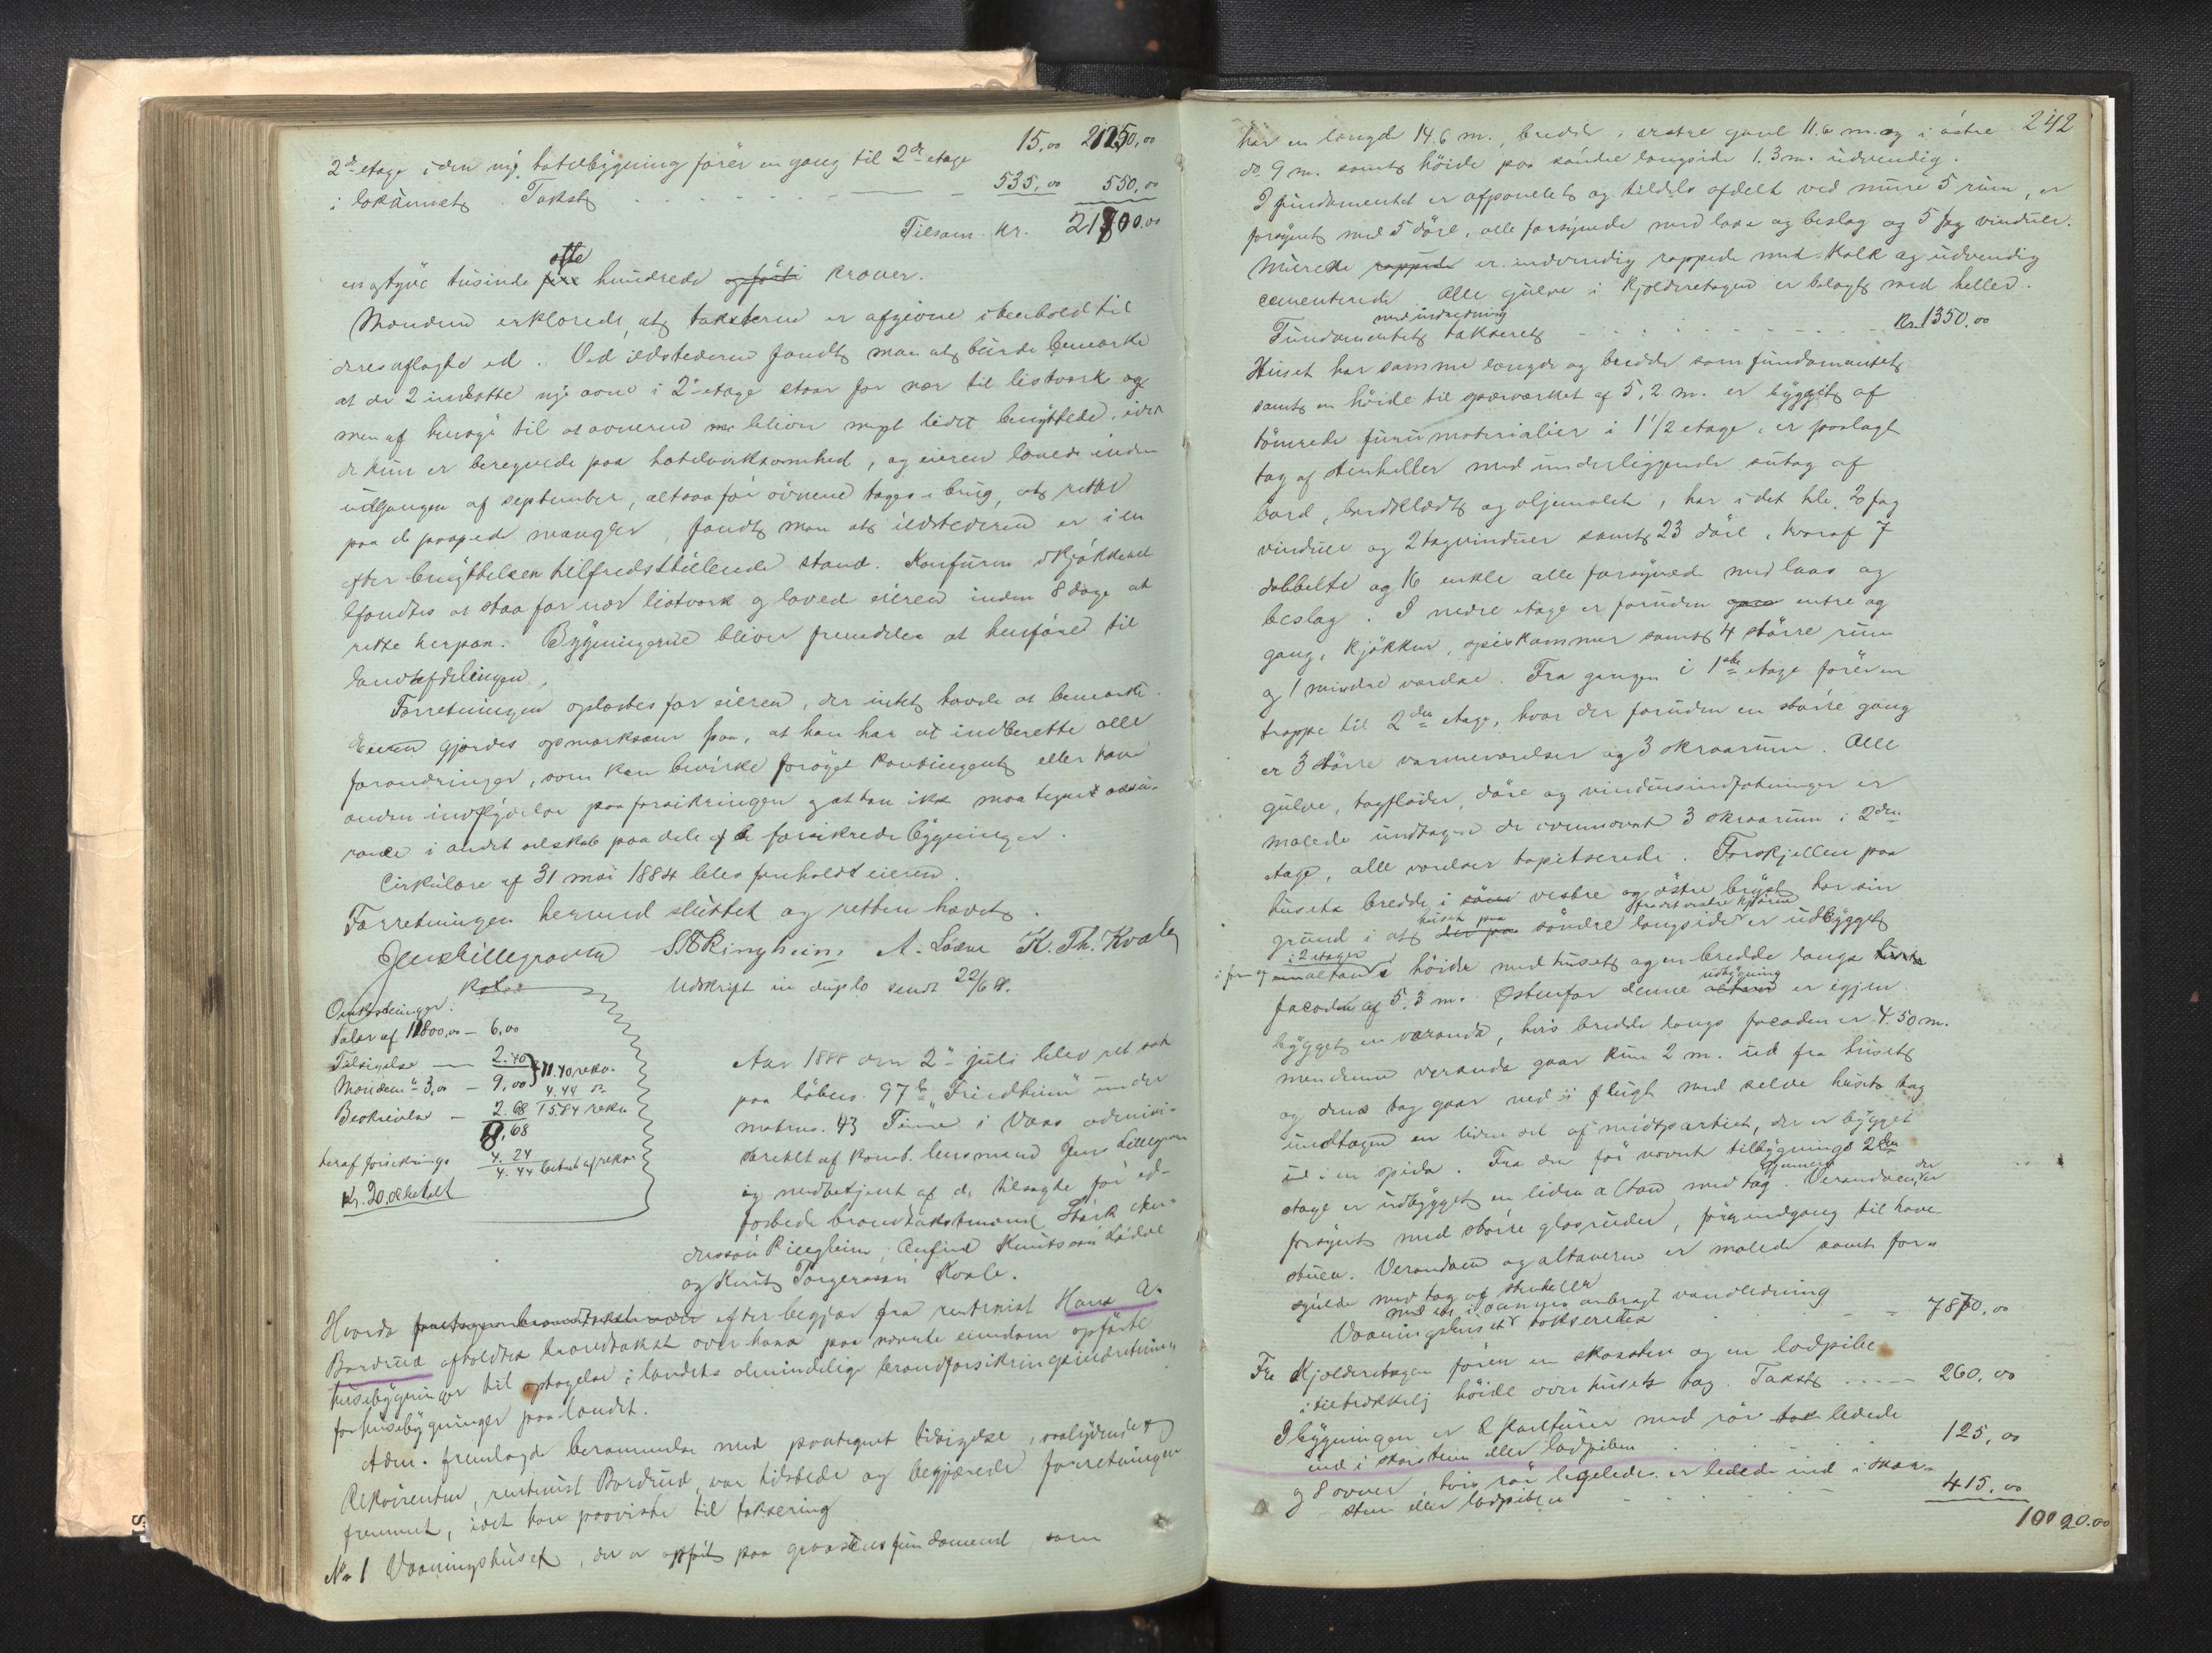 15,00 21250,00
2de etage i den nye hotelbygning fører en gang til 2de etage
i lokumet. Takst 535,00 550,00
Tilsam. Kr. 21800.00
en og tyve tusinde otte hundrede og forti kroner.
Mændene erklærede at taksterne er afgivne i henhold til
deres aflagte ed. Ved ildstederne fandt man at burde bemærke
at de 2 indsatte nye ovne i 2de etage staar for nær til listverk og
men af hensyn til at ovnene bliver meget lidet benyttede, idet
de kun er beregnede paa hotelvirksomhed, og eieren lovede inden
udgangen af september, altsaa før ovnene tages i brug, at rette
paa de paapegede mangler, fandt man at ildstederne er i en
efter benyttelsen tilfredsstillende stand. Komfuren i kjøkkenet
befandtes at staa for nær listverk og loved eieren inden 8 dage at
rette herpaa. Bygningerne bliver fremdeles at henføre til
landafdelingen.
Forretningen oplæstes for eieren, der intet havde at bemærke.
Eieren gjordes opmærksom paa, at han har at indberette alle
forandringer, som kan bevirke forøget kontingent eller have
anden indflydelse paa forsikringen og at han ikke maa tegne assu-
rance i andet selskab paa dele af de forsikrede bygninger.
Cirkulære af 31 mai 1884 blev foreholdt eieren.
Forretningen hermed sluttet og retten hævet.
Jens Lillegraven S E Ringheim A. Lødve K. Th. Kvale
Udskrift in duplo sendt 22/6 88.
Omkostninger:
Salær af 21800,00 – 6,00
Tilsigelse – 2.40
Mændene a 3,00 – 9,00 11.40 rekv.
4.44 
Beskrivelse – 2.68 15.84 rekv
8,68
heraf forsikrings 4.24
4.44 betalt af rekv.
Kr. 20,08 betalt
Aar 1888 den 2de juli blev ret sat
paa løbenr. 97 b "Friedheim" under
matrnr. 43 Finne i Voss admini-
streret af konst. lensmand Jens Lillegraven
og medbetjent af de tilsagte før ed-
fæstede brandtakstmænd Størk 
dersson Ringheim, Anfind Knutsson Lødve
og Knut Torgerssøn Kvale.
Hvorda foretages brandtakst over efter begjær fra rentenist Hans A.
Bardrud afholdtes brandtakst over hans paa nævnte eiendom opførte
husebygninger til optagelse i landets almindelige brandforsikringsindretning
for husebygninger paa landet.
Adm. fremlagde berammelse med paategnet tilsigelse, saalydende
Rekvirenten, rentenist Bardrud var tilstede og begjærede forretningen
fremmet, idet han paaviste til taksering
No 1 Vaaningshuset, der er opført paa graastensfundament, som
242
har en længde 14.6 m., bredde i vestre gavl 11.6 m. og i østre
do. 9 m. samt høide paa søndre langside 1.3 m. udvendig.
I fundamentet er afpanelet og tildels afdelt ved mure 5 rum, er
forsynet med 5 døre, alle forsynede med laas og beslag og 5 fag vinduer.
Murede rappede er indvendig rappede med kalk og udvendig
cementerede. Alle gulve i kjælderetagen er belagt med heller.
med indredning
Fundamentet takseret Kr. 1350,00
Huset har samme længde og bredde som fundamentet
samt en høide til sperværket af 5,2 m. er bygget af
tømrede furumaterialier i 1 1/2 etage, er paalagt
tag af stenheller med underliggende sutag af
bord, bordklædt og oljemalet, har i det hele 20 fag
vinduer og 2 tagvinduer samt 23 døre, hvoraf 7
dobbelte og 16 enkle alle forsynede med laas og
beslag. I nedre etage er foruden entre og
gang, kjøkken, spiskammer samt 4 større rum
og 1 mindre værelse. Fra gangen i 1ste etage fører en
trappe til 2den etage, hvor der foruden en større gang
er 3 større varmeværelser og 3 skraarum. Alle
gulve, tagflader, døre og vindusindfatninger er
malede undtagen de ovennævnte 3 skraarum i 2den
etage, alle værelser tapetserede. Forskjellen paa
husets bredde i vestre og østre bryst har sin
huset paa fra det vestre hjørne
grund i at der paa søndre langside er udbygget
i 2 etager
i form af en altan i høide med huset og en bredde langs
udbygning
facaden af 5.3 m. Østenfor denne altan er igjen
bygget en veranda, hvis bredde langs facaden er 4.50 m.
men denne veranda gaar kun 2 m. ud fra huset
og dens tag gaar ned i flugt med selve husets tag
undtagen en liden del af midtpartiet, der er bygget
ud i en spids. Fra den før nævnte tilbygnings 2den
etage er udbygget en liden altan med tag. Verandaen, der er
forsynet med større glasruder, før indgang til have
stuen. Verandaen og altanerne er malede samt for-
synede med tag af stenheller
med en i gangen anbragt vandledning
Vaaningshuset takseredes 7870,00
Fra kjælderetagen fører en skorsten og en lodpibe
i tilstrækkelig høide over husets tag. Takst 260,00
I bygningen er 2 komfurer med rør ledede
ind i skorsten eller lodpiben 125,00
og 8 ovner, hvis rør ligeledes er ledede ind i skor-
sten eller lodpiben 415,00
10020.00